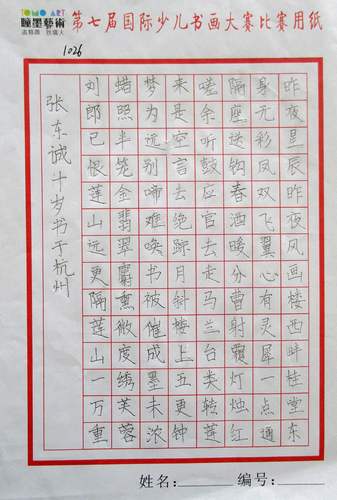 TOMO ART
瞳墨藝術
第七届国际少儿书画大赛比赛用纸
1026
昨夜星辰昨夜风画楼西畔桂堂东
身无彩凤双飞翼心有灵犀一点通
隔座送钩春酒暖分曹射覆灯烛红
嗟余听鼓应官去走马兰台类转蓬
来是空言去绝踪月斜楼上五更钟
梦为远别啼难唤书被催成墨未浓
蜡照半笼金翡翠麝熏微度绣芙蓉
刘郎已恨蓬山远更隔蓬山一万重
张东诚十岁书于杭州
姓名: 编号: